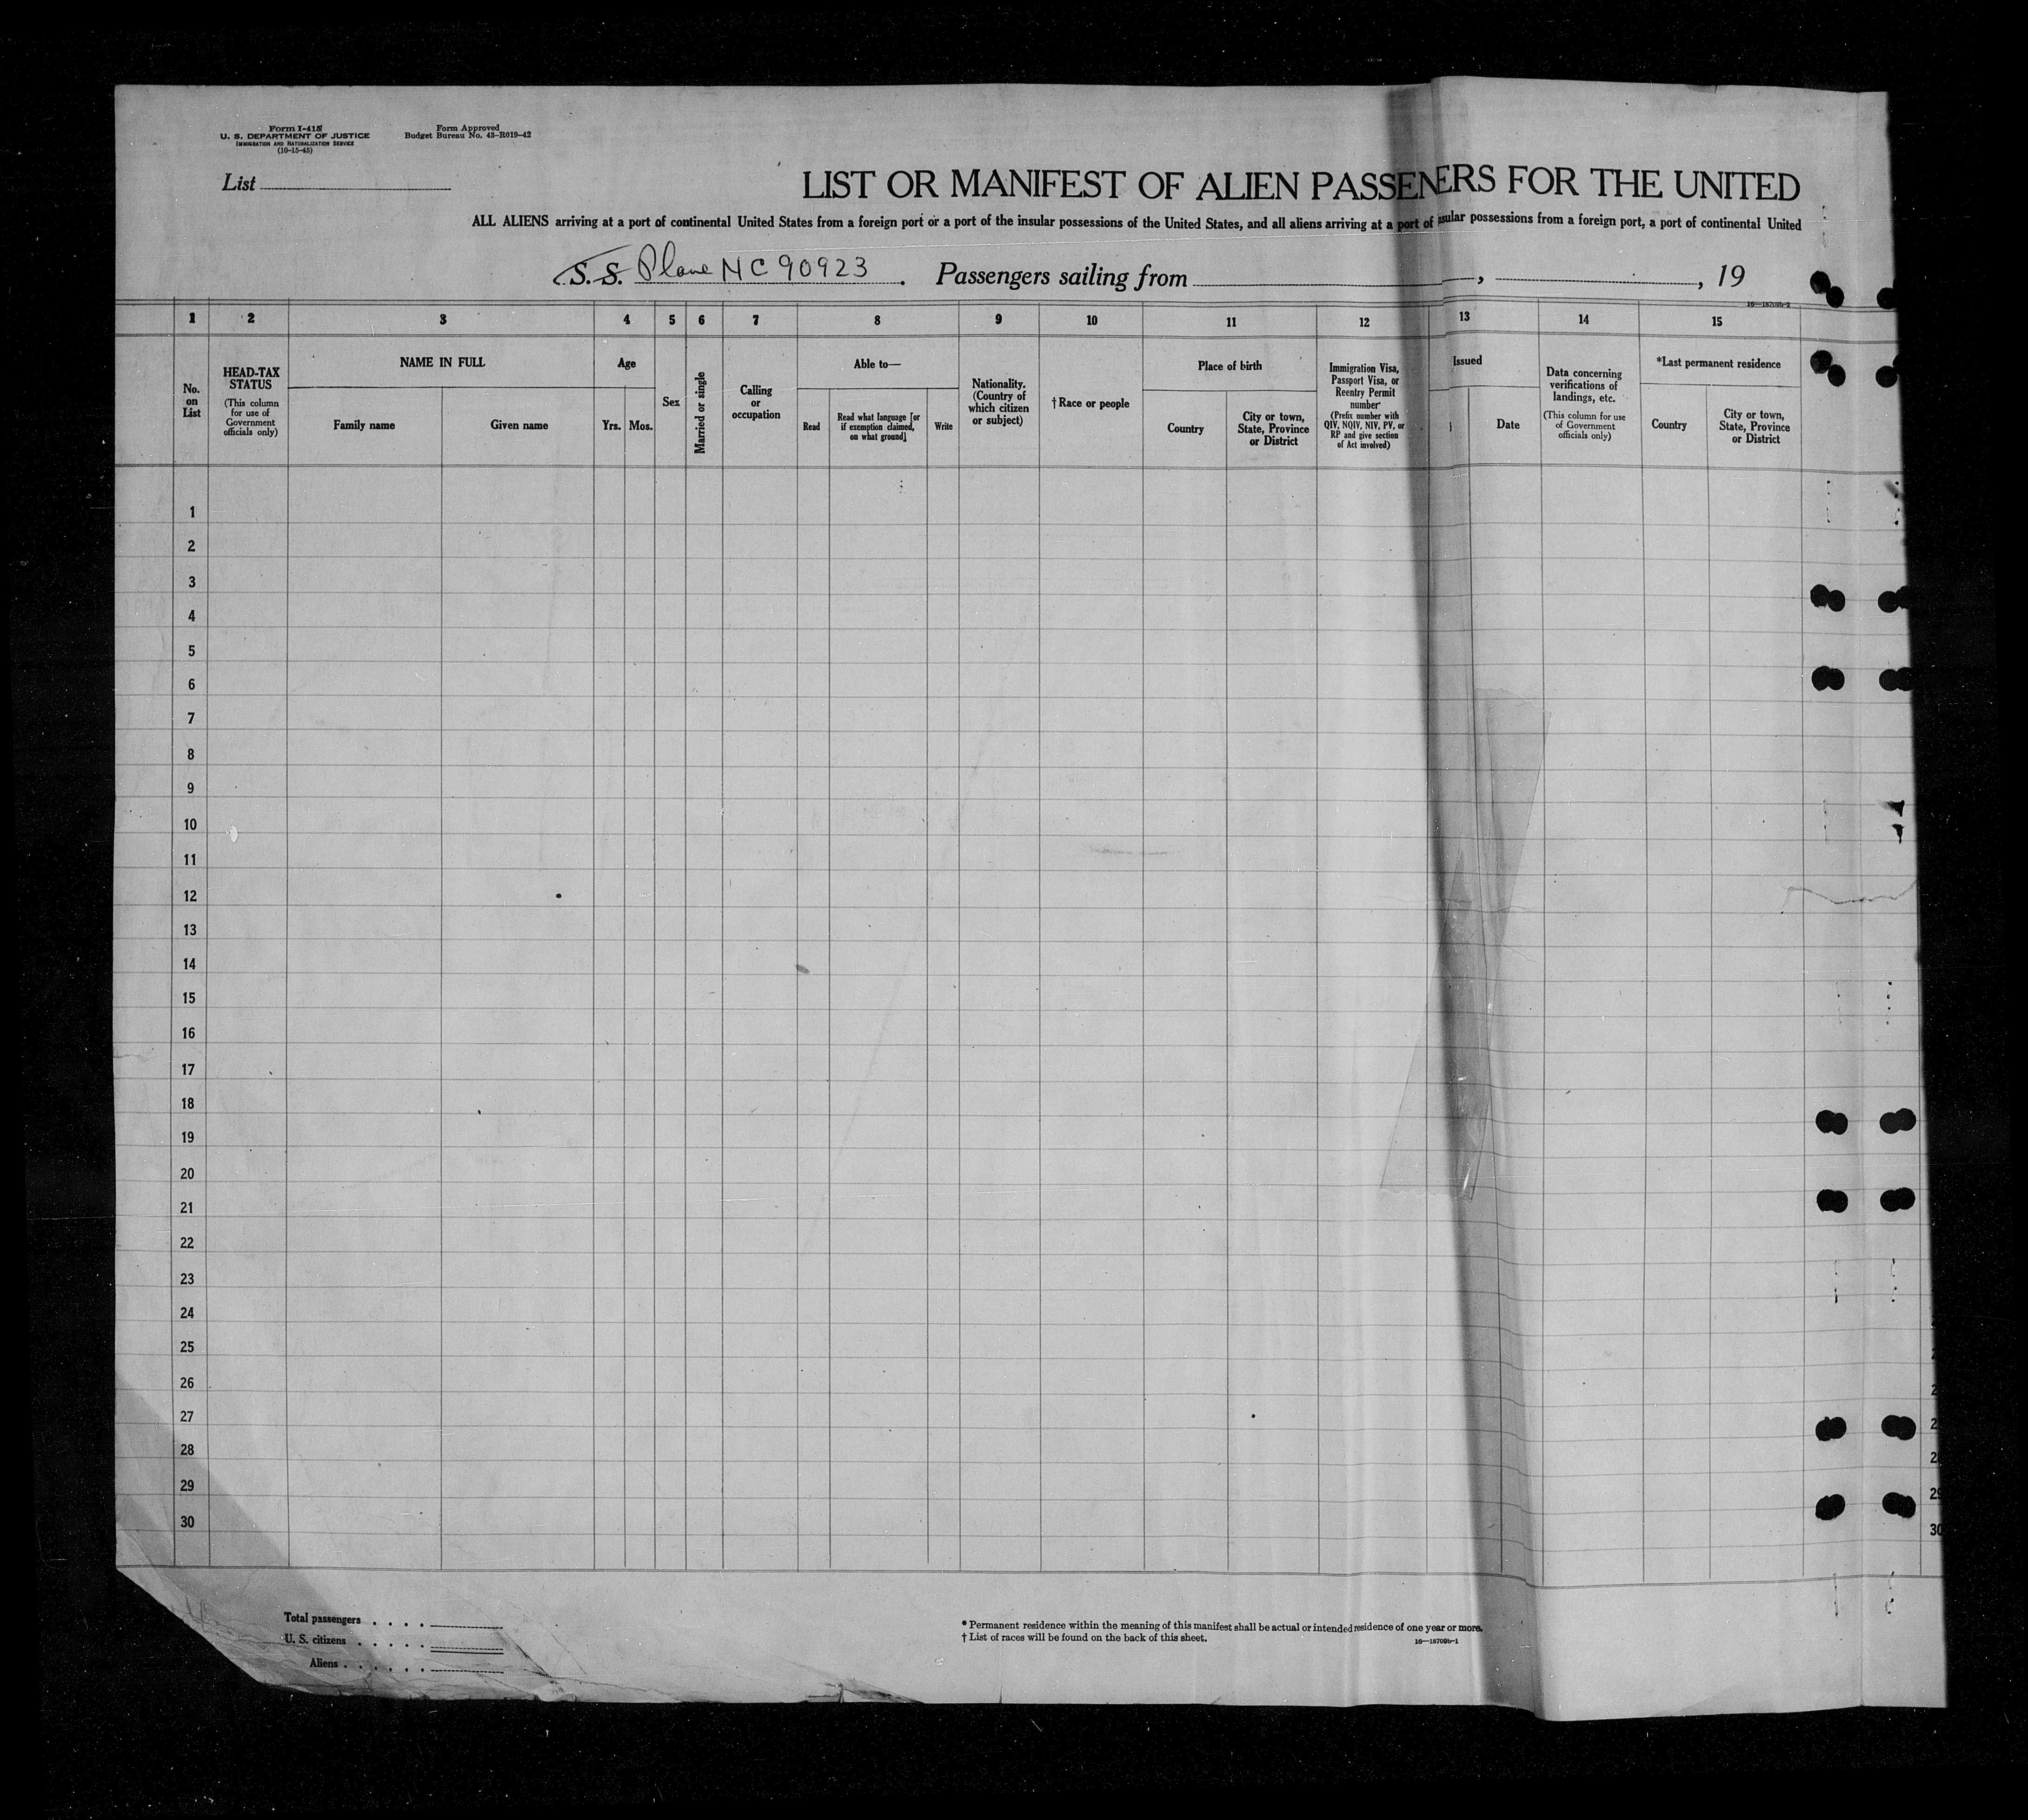 Form I-415
U. S. DEPARTMENT OF JUSTICE
IMMIGRATION AND NATURALIZATION SERVICE
(10-15-45)
Form Approved
Budget Bureau No. 43-R019-42
List
LIST OR MANIFEST OF ALIEN PASSENERS FOR THE UNITED
ALL ALIENS arriving at a port of continental United States from a foreign port or a port of the insular possessions of the United States, and all aliens arriving at a port of insular possessions from a foreign port, a port of continental United
S. S. Plane NC 90923. Passengers sailing from , , 19
16—18709b-2
1 2 3 4 5 6 7 8 9 10 11 12 13 14 15
No. on List
HEAD-TAX STATUS
(This column for use of Government officials only)
NAME IN FULL
Family name
Given name
Age
Yrs. Mos.
Sex
Married or single
Calling or occupation
Able to—
Read
Read what language [or if exemption claimed, on what ground]
Write
Nationality. (Country of which citizen or subject)
†Race or people
Place of birth
Country
City or town, State, Province or District
Immigration Visa, Passport Visa, or Reentry Permit number
(Prefix number with QIV, NQIV, NIV, PV, or RP and give section of Act involved)
Issued
Date
Data concerning verifications of landings, etc.
(This column for use of Government officials only)
*Last permanent residence
Country
City or town, State, Province or District
1
2
3
4
5
6
7
8
9
10
11
12
13
14
15
16
17
18
19
20
21
22
23
24
25
26
27
28
29 29
30 30
Total passengers . . . .
U. S. citizens . . . . .
Aliens . . . . . .
* Permanent residence within the meaning of this manifest shall be actual or intended residence of one year or more.
† List of races will be found on the back of this sheet.
16—18709b-1